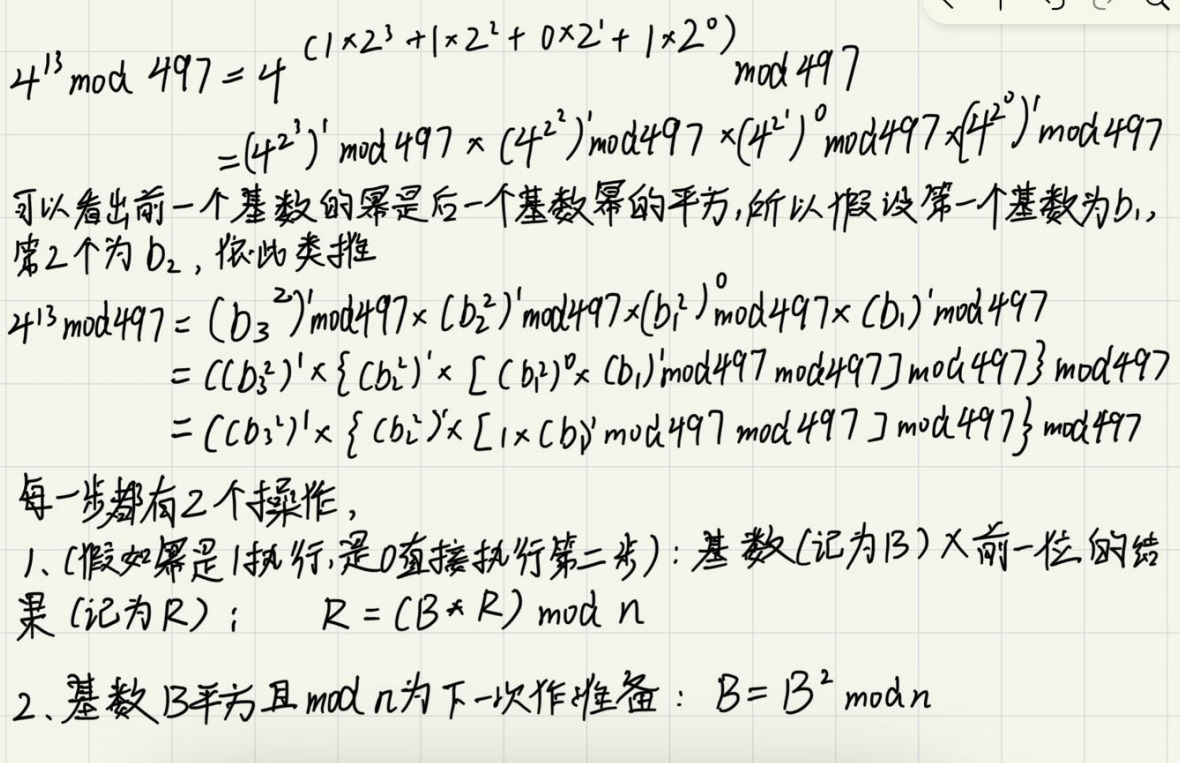 4¹³ mod 497 = 4^(1×2³+1×2²+0×2¹+1×2⁰) mod 497
=(4^2³)¹ mod 497 × (4^2²)¹ mod 497 ×(4^2¹)⁰ mod 497 ×(4^2⁰)¹ mod 497
可以看出前一个基数的幂是后一个基数幂的平方,所以假设第一个基数为b₁,
第2个为b₂,依此类推
4¹³ mod 497 = (b₃²)¹ mod 497 × (b₂²)¹ mod 497 ×(b₁²)⁰ mod 497 × (b₁)¹ mod 497
= ((b₃²)¹ × { (b₂²)¹ × [ (b₁²)⁰ × (b₁)¹ mod 497 mod 497 ] mod 497} mod 497
= ((b₃²)¹ × { (b₂²)¹ × [ 1 × (b₁)¹ mod 497 mod 497 ] mod 497} mod 497
每一步都有2个操作,
1、(假如幂是1执行,是0直接执行第二步):基数(记为B)×前一位的结
果(记为R); R = (B * R) mod n
2、基数B平方且mod n为下一次作准备: B = B² mod n